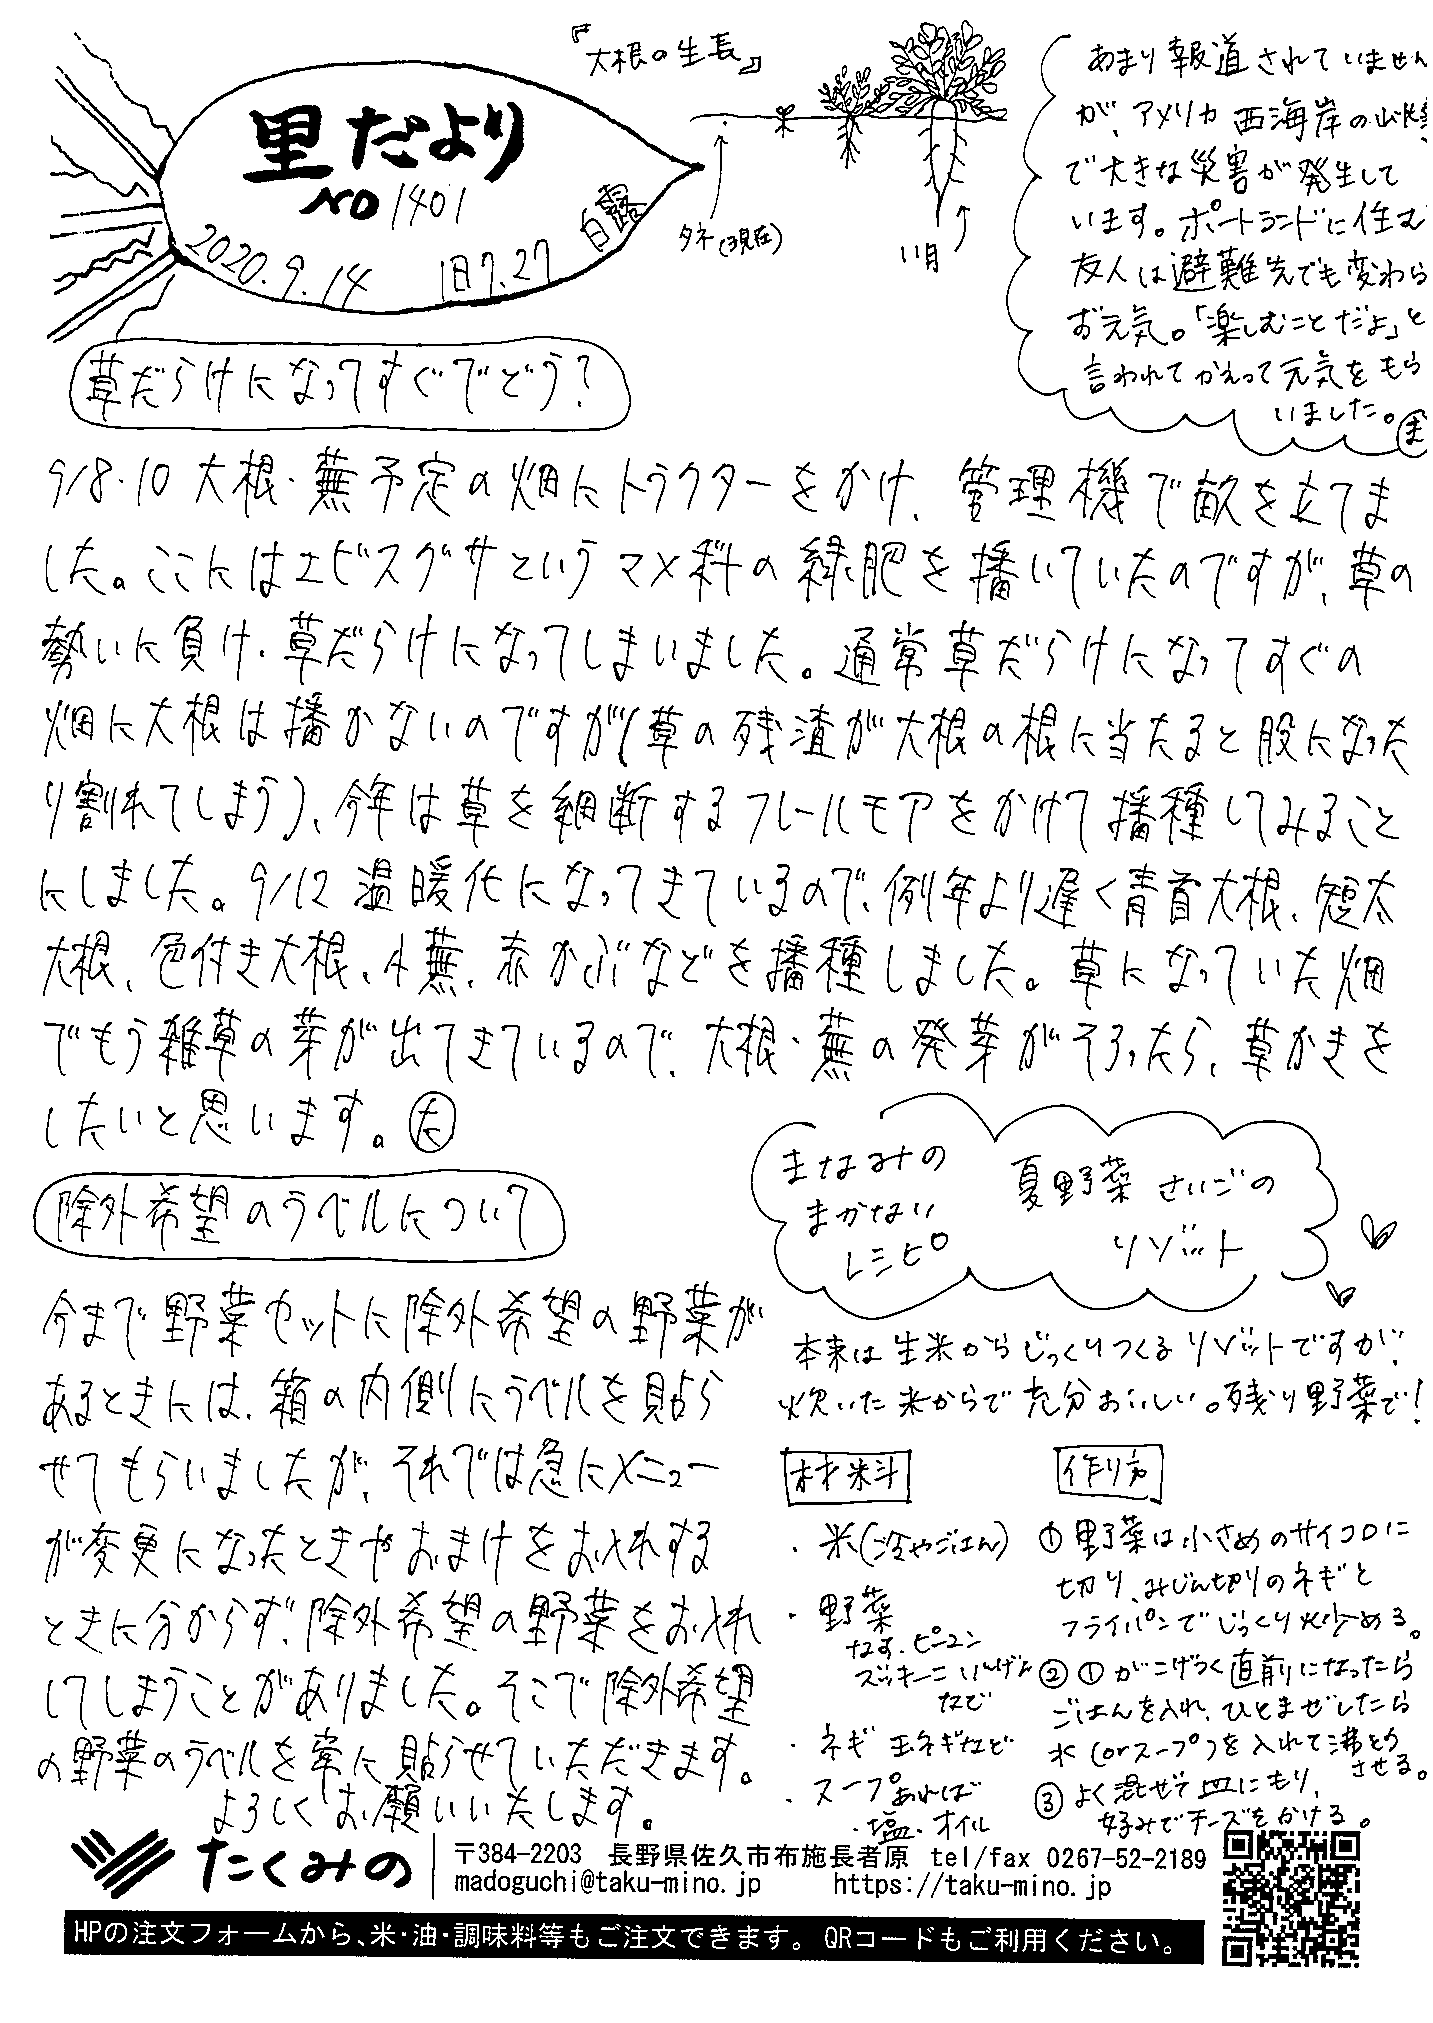 里だより
NO 1401
2020.9.14 旧7.27 白露
『大根の生長』
タネ(現在)
11月
あまり報道されていません
が、アメリカ西海岸の山火事
で大きな災害が発生して
います。ポートランドに住む
友人は避難先でも変わら
お元気。「楽しむことだよ」と
言われてかえって元気をもら
いました。
草だらけになってすぐでどう?
9/8・10 大根・蕪予定の畑にトラクターをかけ、管理機で畝を立てま
した。ここにはエビスグサというマメ科の緑肥を播いていたのですが、草の
勢いに負け、草だらけになってしまいました。通常草だらけになってすぐの
畑に大根は播かないのですが(草の残渣が大根の根に当たると股になった
り割れてしまう)、今年は草を細断するフレールモアをかけて播種してみること
にしました。9/12 温暖化になってきているので、例年より遅く青首大根、短太
大根、色付き大根、小蕪、赤かぶなどを播種しました。草になっていた畑
でもう雑草の芽が出てきているので、大根・蕪の発芽がそろったら、草かきを
したいと思います。㋟
除外希望のラベルについて
今まで野菜セットに除外希望の野菜が
あるときには、箱の内側にラベルを貼ら
せてもらいましたが、それでは急にメニュー
が変更になったときやおまけをお入れする
ときに分からず、除外希望の野菜をお入れ
してしまうことがありました。そこで除外希望
の野菜のラベルを常に貼らせていただきます。
よろしくお願いいたします。
まなみの
まかない
レシピ
夏野菜さいごの
リゾット
本来は生米からじっくりつくるリゾットですが、
炊いた米からで充分おいしい。残り野菜で!
材料
・米(冷やごはん)
・野菜
なす・ピーマン
ズッキーニ いんげん
など
・ネギ 玉ネギなど
・スープあれば
・塩・オイル
作り方
① 野菜は小さめのサイコロに
切り、みじん切りのネギと
フライパンでじっくり炒める。
② ①がこげつく直前になったら
ごはんを入れ、ひとまぜしたら
水(orスープ)を入れて沸とう
させる。
③ よく混ぜて皿にもり、
好みでチーズをかける。
たくみの
〒384-2203 長野県佐久市布施長者原 tel/fax 0267-52-2189
madoguchi@taku-mino.jp https://taku-mino.jp
HPの注文フォームから、米・油・調味料等もご注文できます。QRコードもご利用ください。